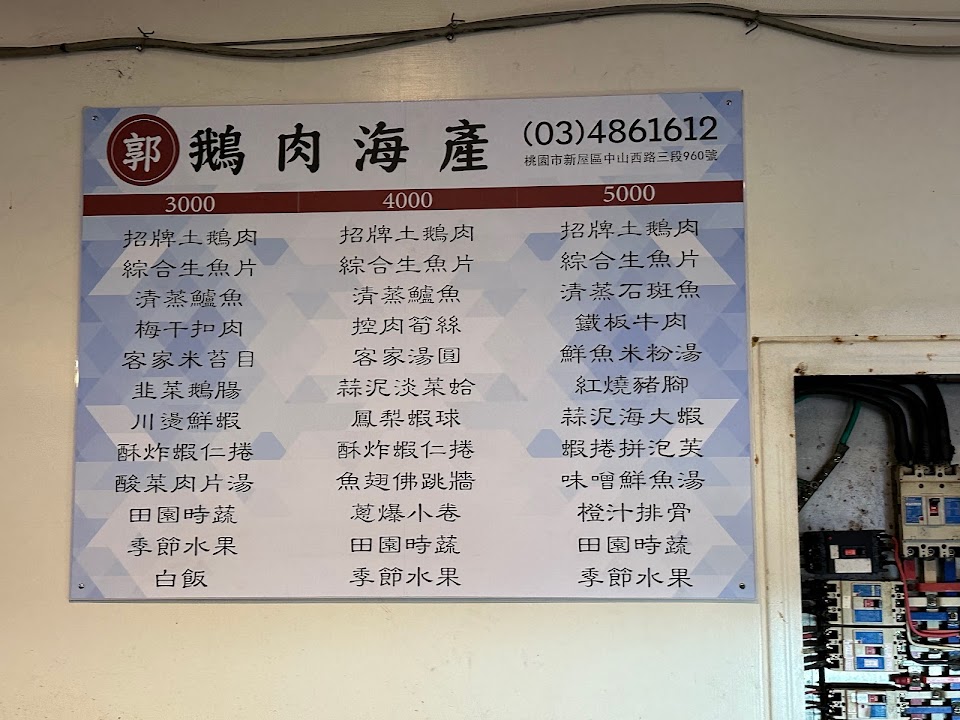 郭 鵝肉海產 (03)4861612
桃園市新屋區中山西路三段960號
3000 4000 5000
招牌土鵝肉 招牌土鵝肉 招牌土鵝肉
綜合生魚片 綜合生魚片 綜合生魚片
清蒸鱸魚 清蒸鱸魚 清蒸石斑魚
梅干扣肉 控肉筍絲 鐵板牛肉
客家米苔目 客家湯圓 鮮魚米粉湯
韭菜鵝腸 蒜泥淡菜蛤 紅燒豬腳
川燙鮮蝦 鳳梨蝦球 蒜泥海大蝦
酥炸蝦仁捲 酥炸蝦仁捲 蝦捲拼泡芙
酸菜肉片湯 魚翅佛跳牆 味噌鮮魚湯
田園時蔬 蔥爆小卷 橙汁排骨
季節水果 田園時蔬 田園時蔬
白飯 季節水果 季節水果